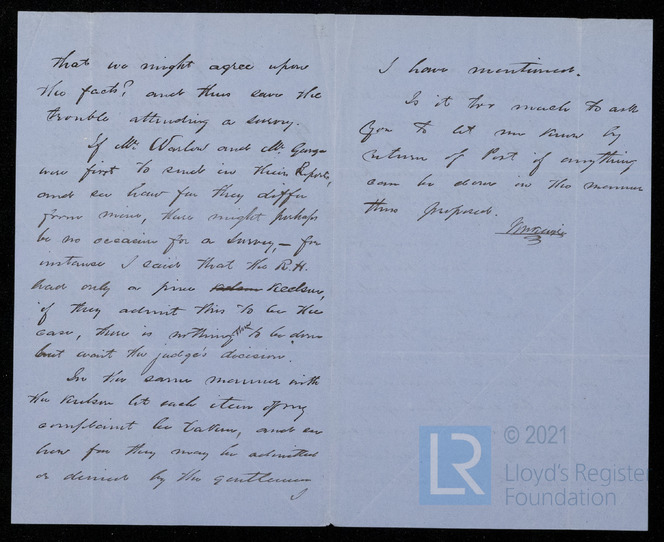 that we might agree upon
the facts? and thus save the
trouble attending a survey.
If Mr. Warlow and Mr. George
were first to send in their Reports,
and see how far they differ
from mine, there might perhaps
be no occasion for a survey, – for
instance I said that the R.H.
had only a pine Keelson,
if they admit this to be the
case, there is nothing to be done
but await the judge's decision.
In the same manner with
the Keelson let each item of my
complaint be taken, and see
how far they may be admitted
or denied by the gentlemen
I have mentioned.
Is it too much to ask
you to let me know by
return of Post if anything
can be done in the manner
thus proposed.
© 2021
LR
Lloyd's Register
Foundation